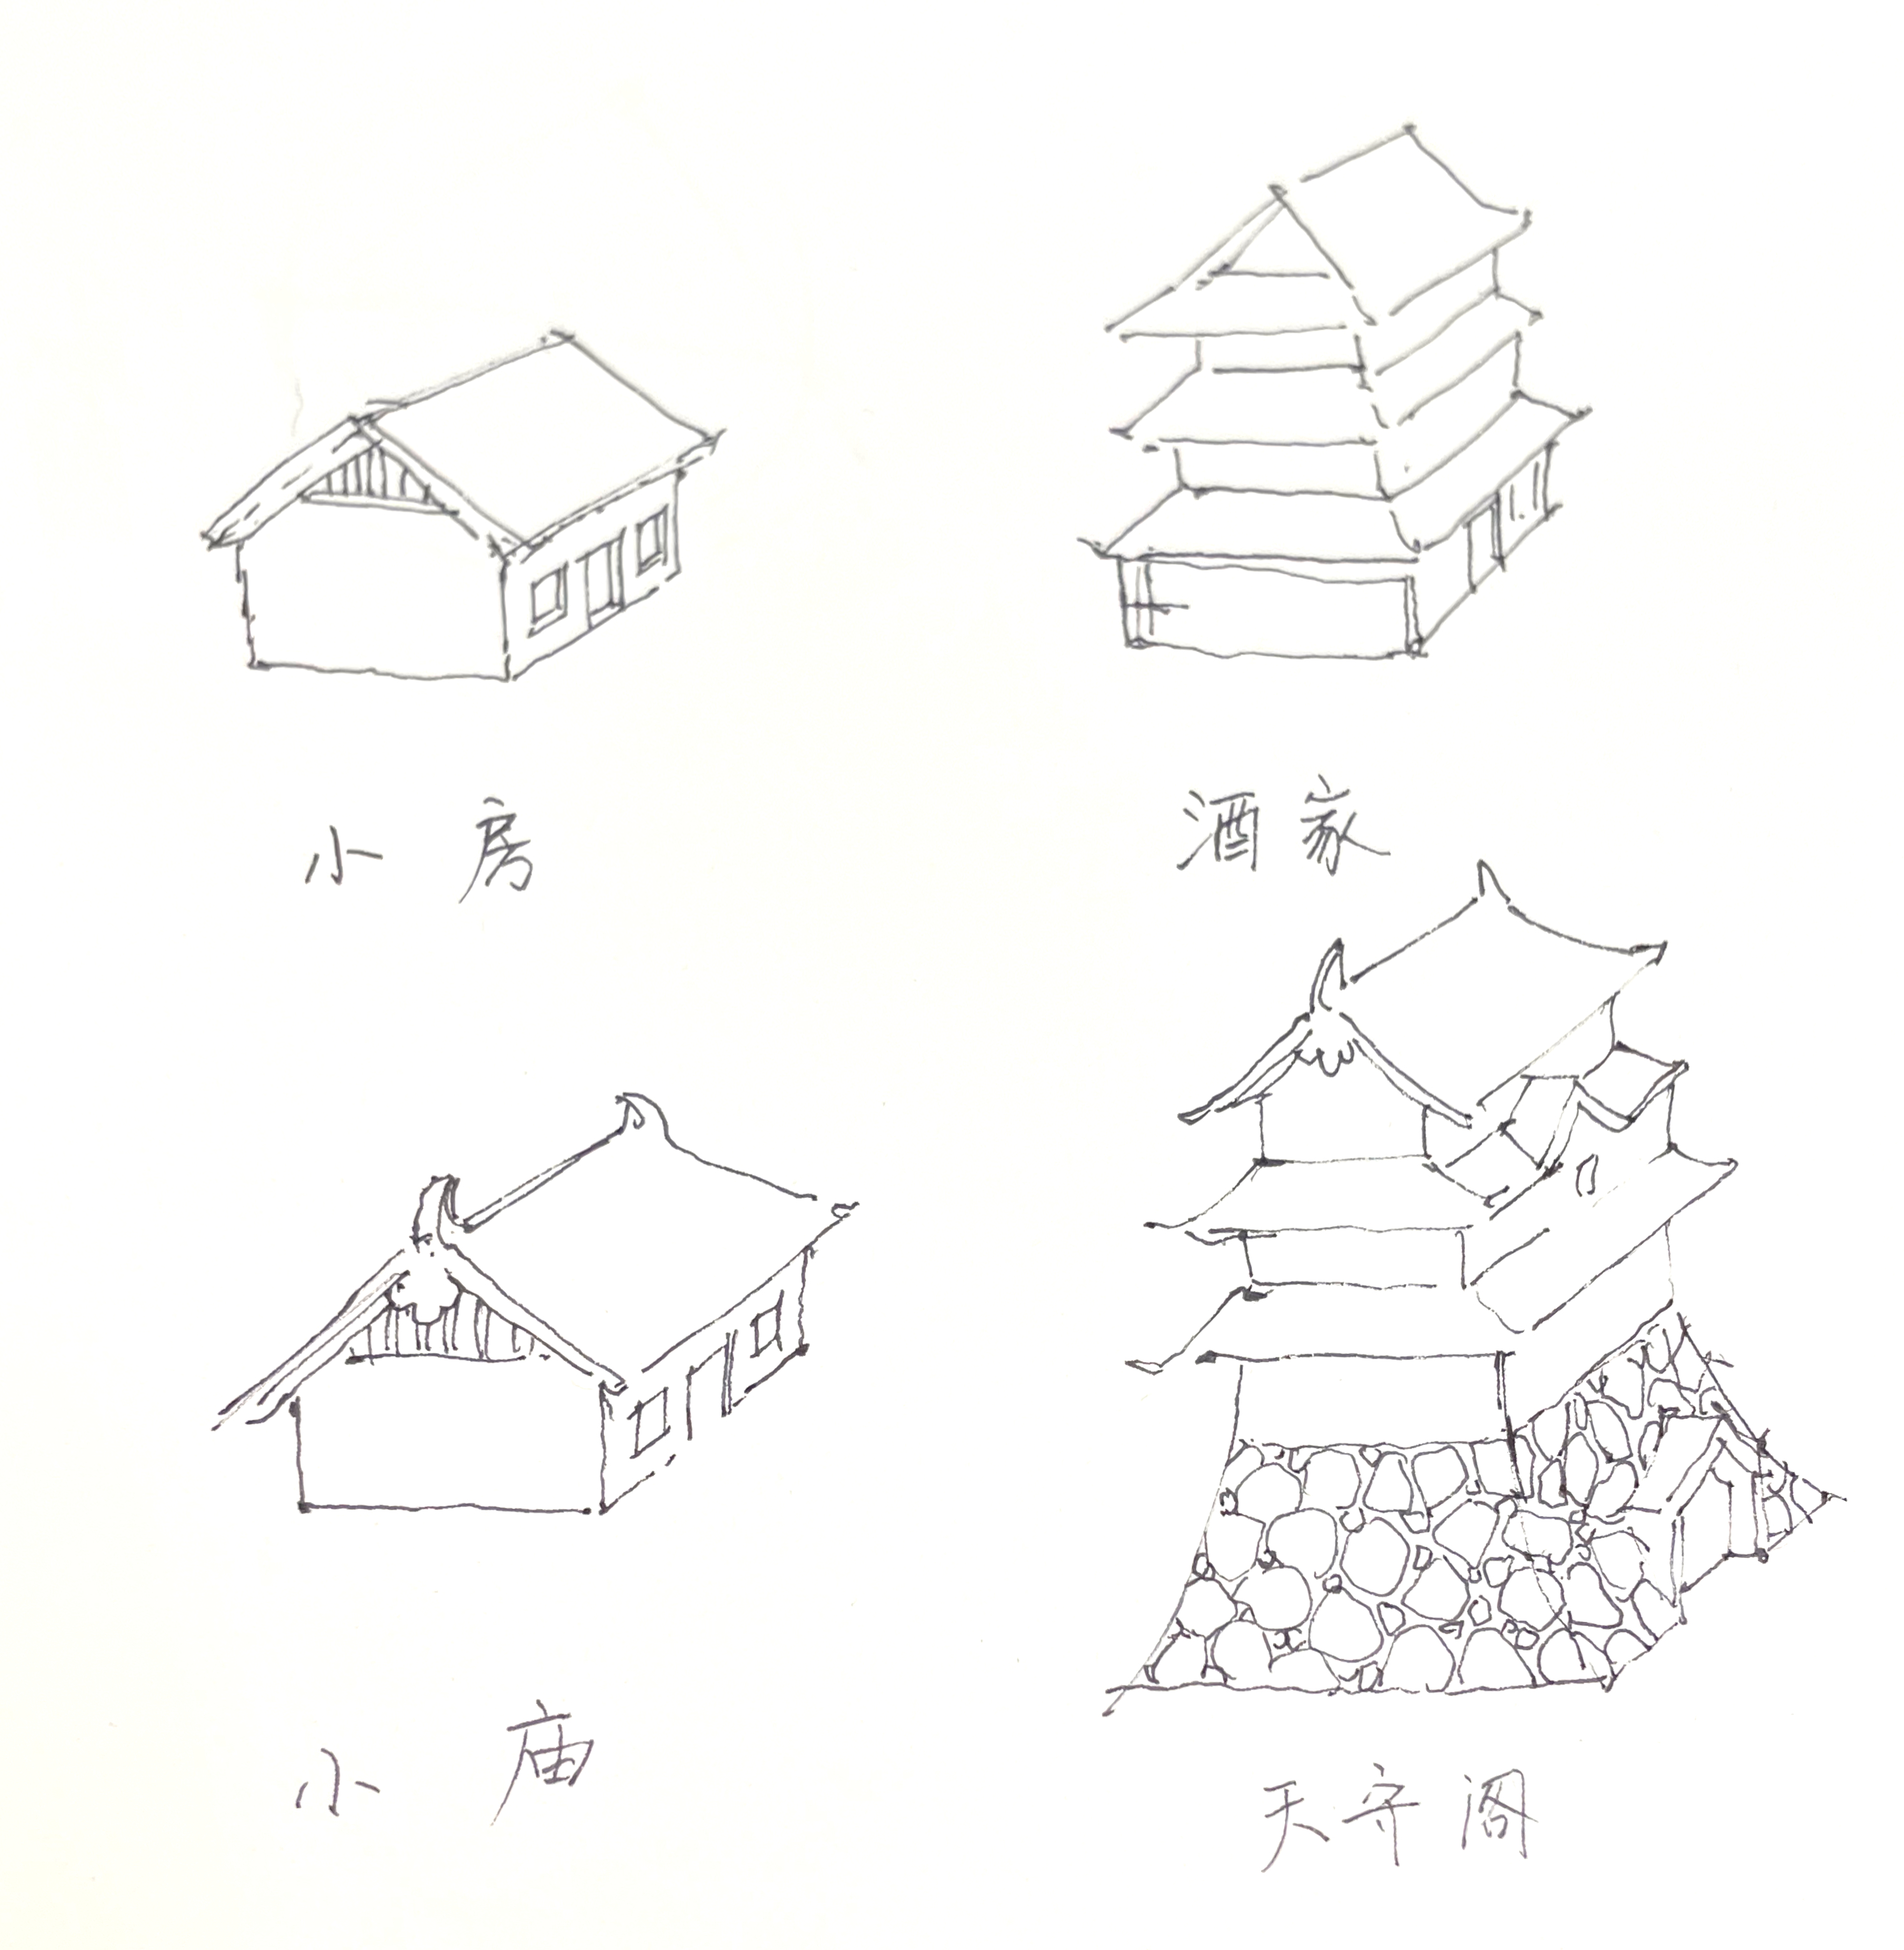 小房
酒家
小庙
天守阁